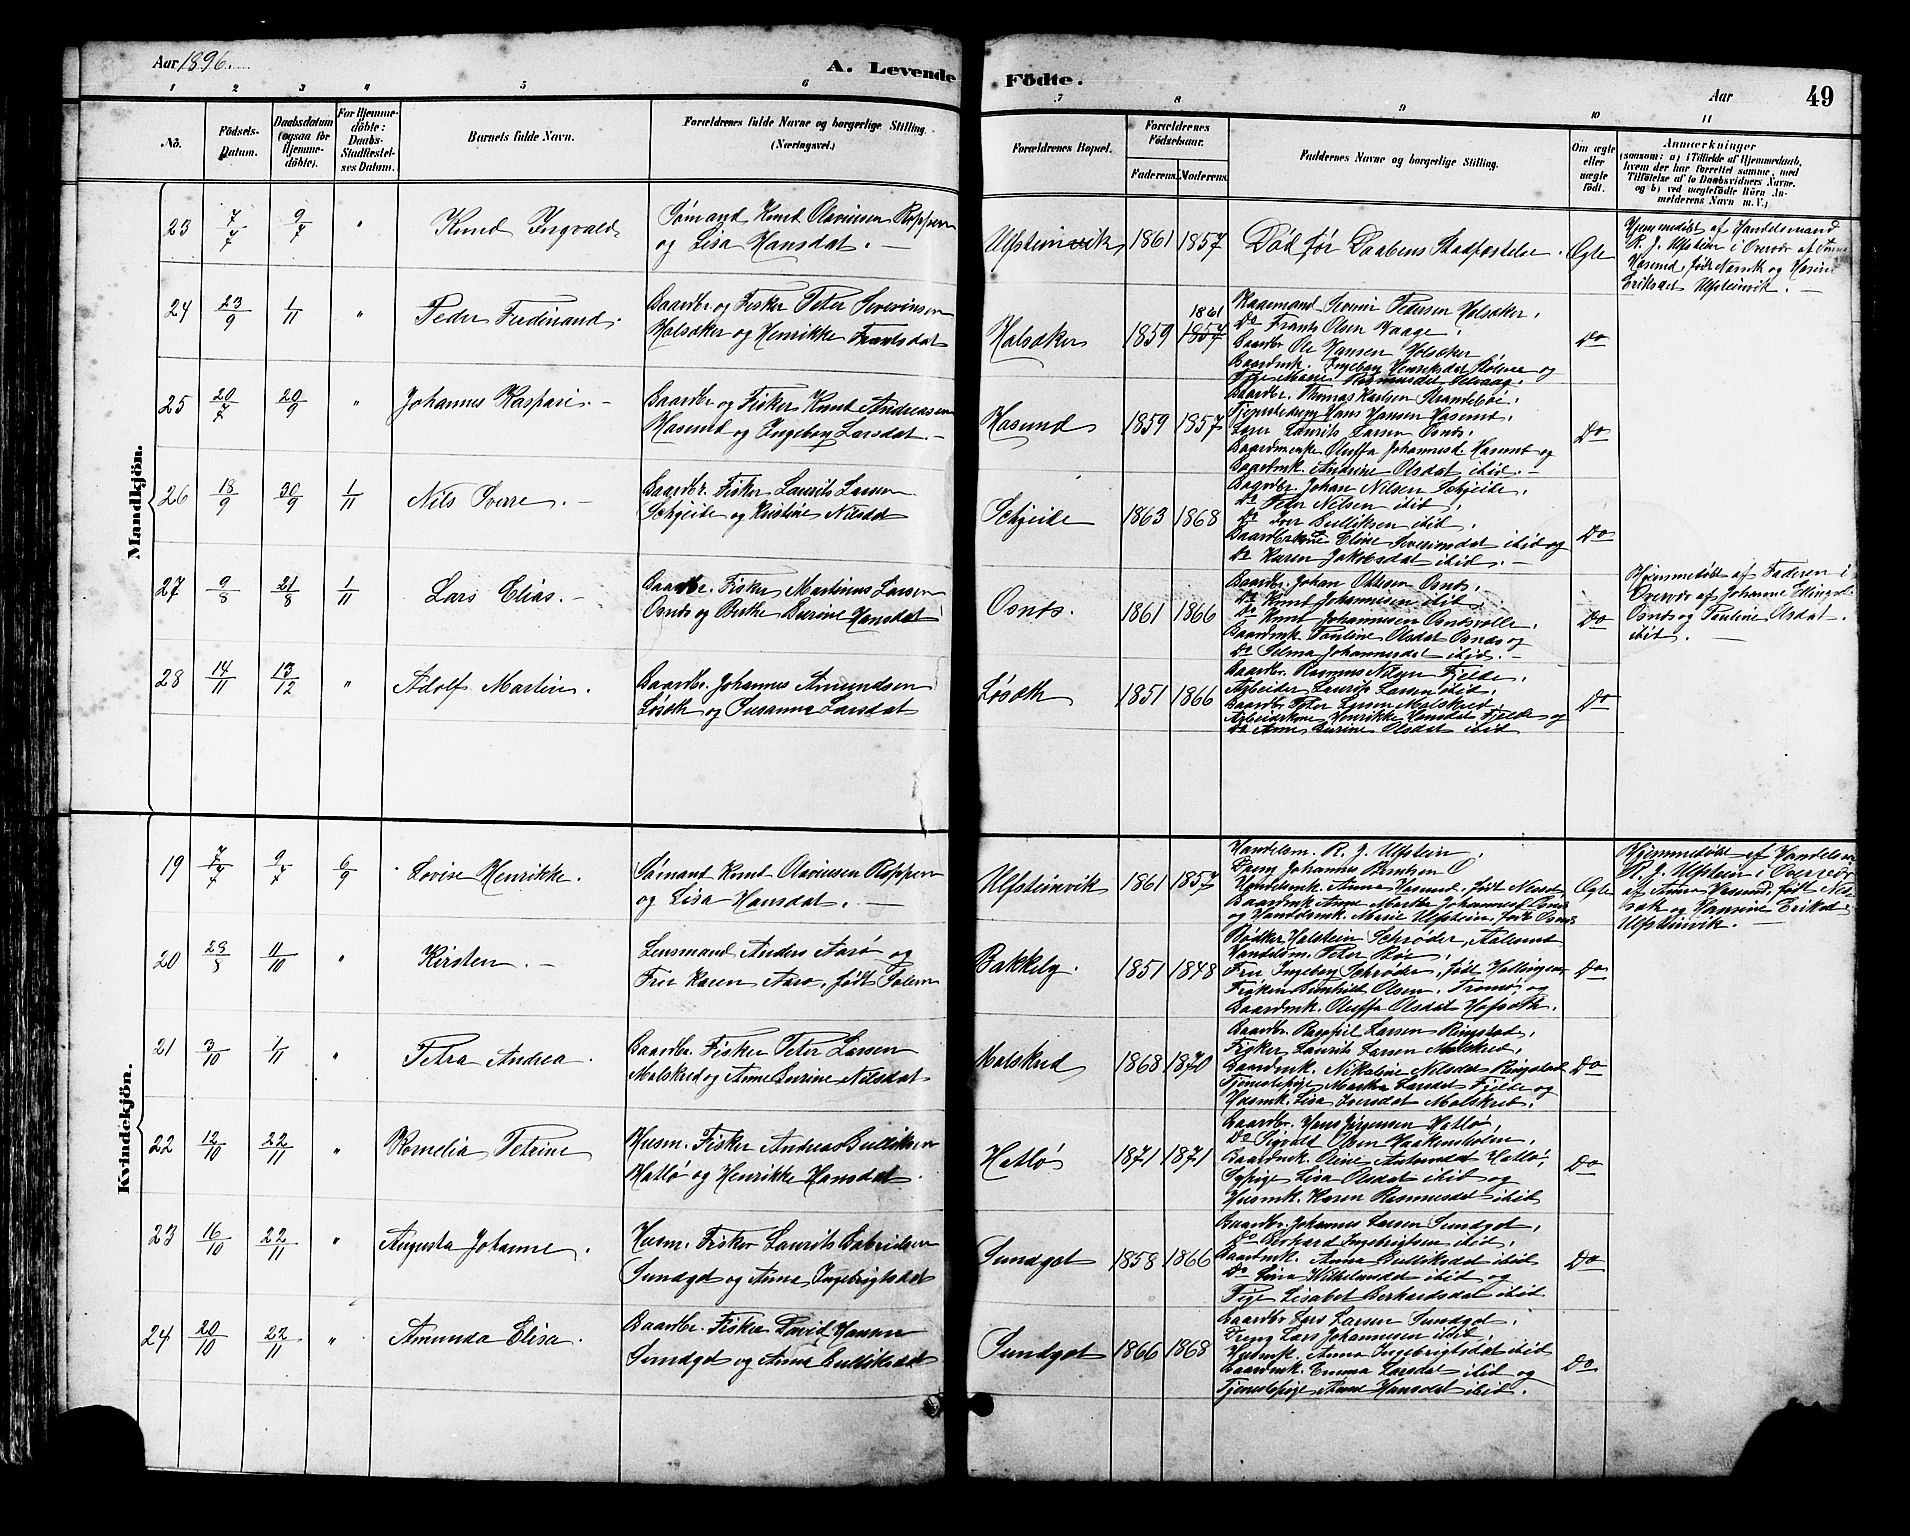 Aar 1896.
A. Levende Födte.
Aar
49
1 2 3 4 5 6 7 8 9 10 11
No.
Födsels-Datum.
Daabsdatum (ogsaa for Hjemme-döbte).
For Hjemme-döbte: Daabs-Stadfæstel-ses Datum.
Barnets fulde Navn.
Forældrenes fulde Navne og borgerlige Stilling. (Næringsvei.)
Forældrenes Bopæl.
Forældrenes Födselsaar.
Faderens. Moderens.
Faddernes Navne og borgerlige Stilling.
Om ægte eller uægte födt.
Anmærkninger
(saasom: a) i Tilfælde af Hjemmedaab, hvem der har forrettet samme, med Tilföielse af to Daabsvidners Navne, og b) ved uægtefödte Börn An-melderens Navn m. V.)
Mandkjön.
23 7/7 9/7 " Knud Ingvald
Sømand Knud Olaviusen Røppen
og Lisa Hansdat. —
Ulfsteinvik 1861 1857
Død før Daabens Stadfæstelse. Ægte
Hjemmedøbt af Handelsmand
R. J. Ulfstein i Overvær af Anna
Hasund, født Nesvik og Hansine
Eriksdat Ulfsteinvik. —
24 23/9 1/11 " Peder Ferdinand.
Gaardbr og Fisker Peter Severinsen
Holsæker og Henrikke Frantsdat
Holsæker 1859 1861 1857
Kaarmand Peder Holsæker,
Do Frants Olsen Vaage,
Gaardbr Ole Hansen Holsæker
Gaardmk. Ingeborg Henriksdat og
Pige Marie Rasmusdat
Do
25 20/7 20/9 " Johannes Kaspar. —
Gaardbr og Fisker Knut Andreassen
Hasund og Ingeborg Larsdat. —
Hasund 1859 1857
Gaardbr. Thomas Karlsen Strandebø,
Tjenestedreng Hans Hansen Hasund,
Lærer Laurits Larsen Osnes,
Gaardmenk Oluffa Johannesd. Hasund og
Gaardmk. Andrine Olsdat ibid. —
Do
26 18/9 30/9 1/11 Nils Sverre. —
Gaardbr. Fisker Laurits Larsen
Schjeide og Kristine Nilsdat
Schjeide 1863 1868
Gaardbr. Johan Nilsen Schjeide,
Do Peter Nilsen ibid,
Do Iver Bulliksen ibid,
Gaardbrskone Eline Severinsdat ibid og
Do Karen Jakobsdat ibid. —
Do
27 9/8 21/8 1/11 Lars Elias. —
Gaardbr. Fisker Martinus Larsen
Osnes og Berthe Gurine Hansdat
Osnes. 1861 1866
Gaardbr. Johan Ottesen Osnes,
Do Knut Johannesen ibid,
Do Knut Johannesen Osnesvolle,
Gaardmk Pauline Olsdat Osnes og
Do Selma Johannesdat ibid. —
Do
Hjemmedøbt af Faderen i
Overvær af Johanne Elingsd.
Osnes og Pauline Olsdat
ibid. —
28 14/11 13/12 " Adolf Martin.
Gaardbr. Johannes Amundsen
Løseth og Susanna Larsdat
Løseth 1851 1866
Gaardbr. Rasmus Nilsen Fjelde,
Arbeider Laurits Larsen ibid,
Gaardbr. Peter Larsen Molskred,
Arbeiderkone Henrikke Hansdat Fjelde og
Do Anne Gurine Olsdat ibid
Do
Kvindekjön.
19 7/7 9/7 6/9 Lovise Henrikke.
Sømand Knut Olaviusen Røppen
og Lisa Hansdat. —
Ulfsteinvik 1861 1857
Handelsm. R. J. Ulfstein,
Dreng Johannes Berntsen
Handelsmk. Anna Hasund, født
Gaardmk. Anne Martha Johannesd Osnes
og Handelsmk. Marie Ulfstein, født Osnes
Ægte
Hjemmedøbt af Handelsm
R. J. Ulfstein i Overvær
af Anna Hasund, født Nes-
vik og Hansine Eriksd.
Ulfsteinvik. —
20 28/8 11/10 " Kirsten. —
Lensmand Anders Aarø og
Fru Karen Aarø, født
Bakkely. 1851 1848
Bødker Holstein Schrøder, Aalesund
Handelsm. Peter
Fru Ingeborg Schrøder, født
Frøken Olsen, Tromsø, og
Gaardmk. Oluffa Olsdat Hofseth.
Do
21 3/10 1/11 " Petra Andrea.
Gaardbr. Fisker Peter Larsen
Molskred og Anne Gurine Nilsdat
Molskred 1868 1870
Gaardbr. Larsen Ringstad,
Fisker Laurits Larsen Molskred,
Gaardmk. Nikoline Nilsdat Ringstad
Tjenestepige Martha Larsdat Fjelde og
Husmk. Lisa Iversdat Molskred.
Do
22 12/10 22/11 " Kornelia Petrine
Husm. Fisker Andreas Bulliksen
Hatlø og Henrikke Hansdat.
Hatlø 1871 1871
Gaardbr. Hans Jørgensen Hatlø,
Do Sigvald Olsen Haakonsholm,
Gaardmk. Oline Antonsdat Hatlø,
Sypige Lisa Olsdat ibid og
Husmk. Karen Rasmusdat ibid
Do
23 16/10 22/11 " Augusta Johanne.
Husm. Fisker Laurits Gabrielsen
Sundgot og Anna Ingebrigtsdat
Sundgot 1858 1866
Gaardbr. Johannes Larsen Sundgot,
Do Berhard Ingebrigtsen ibid,
Gaardmk. Anna Bulliksdat ibid
Do Lina Vilhelmsdat ibid og
Pige Lisabet Berhardsdat ibid
Do
24 20/10 22/11 " Amunda Elisa.
Gaardbr. Fisker David Hansen
Sundgot og Anna Bulliksdat
Sundgot 1866 1868
Gaardbr Lars Larsen Sundgot,
Dreng Lars Johannesen ibid,
Husmk. Anna Ingebrigtsdat ibid
Gaardmk. Emma Larsdat ibid og
Tjenestepige Anne Hansdat ibid.
Do